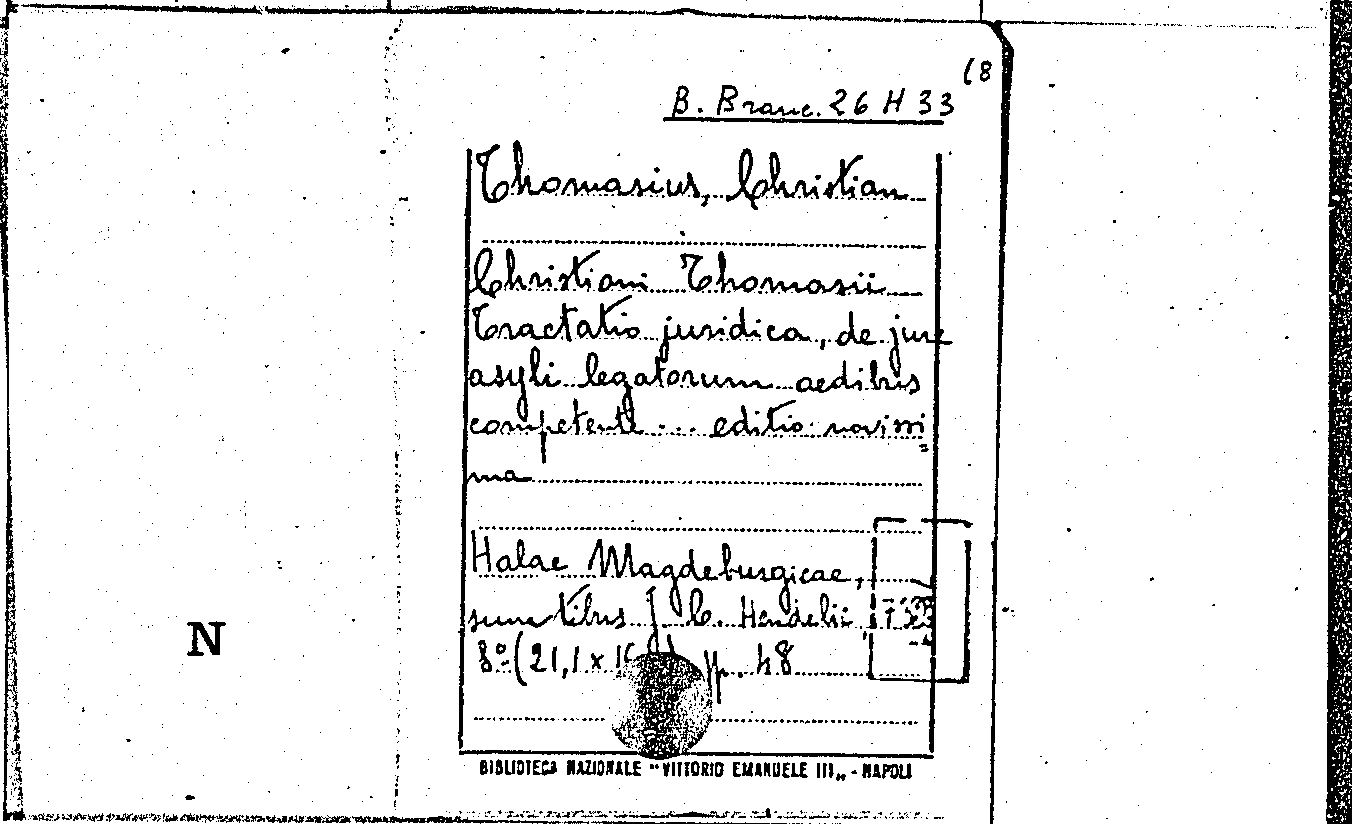 (8
B. Branc. 26 H 33
Thomasius, Christian
Christiani Thomasii
Tractatio juridica, de jure
asyli legatorum aedibus
competente ... editio novissi=
ma
Halae Magdeburgicae,
sumtibus J. C. Hendelii
8º (21,1 x pp. 48
N
BIBLIOTECA NAZIONALE "VITTORIO EMANUELE III„ - NAPOLI